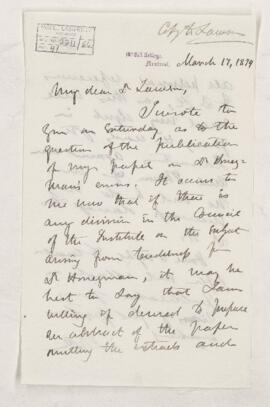 McGill College,
Montreal,
March 17, 1879
My dear Dr Lawson,
I wrote to
you on Saturday as to the
question of the publication
of my paper on Dr Honey-
man's errors. It occurs to
me now that if there is
any division in the Council
of the Institute on the subject
arising from tenderness for
Dr Honeyman, it may be
best to say that I am
willing if desired to prepare
an abstract of the paper
omitting the extracts and